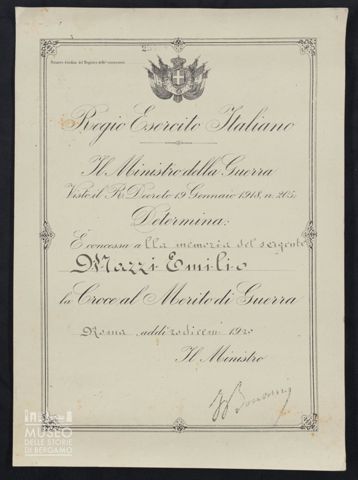 Numero d'ordine del Registro delle concessioni
Regio Esercito Italiano
Il Ministro della Guerra
Visto il R. Decreto 19 Gennaio 1918, n. 205;
Determina:
È concessa alla memoria del sergente
Mazzi Emilio
la Croce al Merito di Guerra
Roma addì 1920
Il Ministro
Bonomi
MUSEO
DELLE STORIE
DI BERGAMO